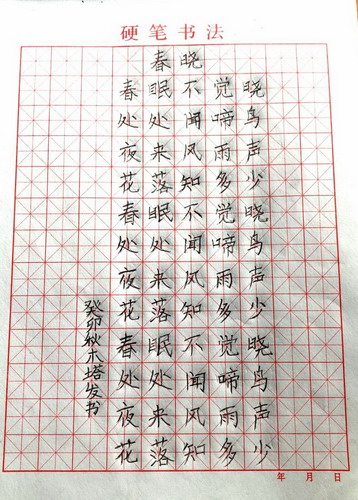 硬笔书法
春晓
春眠不觉晓
处处闻啼鸟
夜来风雨声
花落知多少
春眠不觉晓
处处闻啼鸟
夜来风雨声
花落知多少
春眠不觉晓
处处闻啼鸟
夜来风雨声
花落知多少
癸卯秋木塔发书
年 月 日